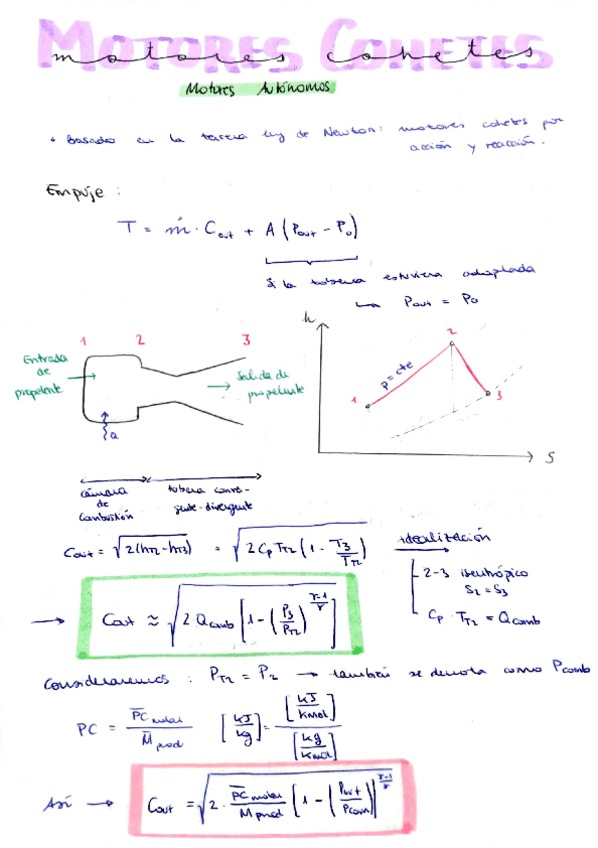 MOTORES COHETES
motores cohetes
Motores Autónomos
• Basado en la tercera ley de Newton: motores cohetes por
acción y reacción.
Empuje :
T = ṁ · C_out + A (P_out - P_0)
Si la tobera estuviera adaptada
↳ P_out = P_0
h
1 2 3
2
Entrada
de
propelente
Salida de
propelente
p = cte
1
3
Q
S
cámara
de
combustión
tobera conver-
gente-divergente
C_out = √2(h_T2 - h_T3) = √2 C_p T_T2 (1 - T_3/T_T2)
idealización
2-3 isentrópico
S_2 = S_3
C_p · T_T2 = Q_comb
→ C_out ≈ √2 Q_comb [1 - (P_3/P_T2)^(γ-1/γ)]
Consideraremos : P_T2 = P_2 → también se denota como P_comb
PC = PC_molar / M_prod [kJ/kg] = [kJ/kmol] / [kg/kmol]
Así → C_out = √2 · PC_molar/M_prod [1 - (P_out/P_com)]^(γ-1/γ)